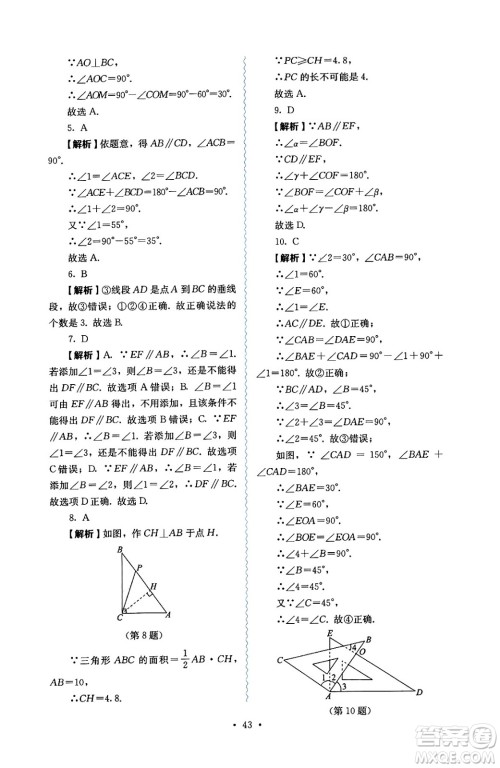 ∵AO⊥BC,
∴∠AOC=90°.
∴∠AOM=90°-60°=30°.
故选 A.
5. A
【解析】依题意,得 AB∥CD,∠ACB=
90°.
∴∠1=∠ACE.
∵∠ACE+∠2=180°-∠ACB=90°.
∴∠1+∠2=90°.
又∵∠1=55°,
∴∠2=90°-55°=35°.
故选 A.
6. B
【解析】③线段 AD 是点 A 到 BC 的垂线
段,故③错误;①②④正确.故正确说法的
个数是 3. 故选 B.
7. D
【解析】A. ∵EF∥AB,∴∠B=∠1.
若添加∠1=∠B,还是不能得出
DF∥BC. 故选项 A 错误;B. ∠B=∠1
可由 EF∥AB 得出,不用添加,且这个条件不
能得出 DF∥BC. 故选项 B 错误;C. ∵
EF∥AB,∴∠B=∠1. 若添加∠1=
∠2,则∠B=∠2,还是不能得出DF∥BC.故选项
C 错误;D. ∵∠1=∠DFE,∴DF∥BC.
故选项 D 正确. 故选 D.
8. A
【解析】如图,作 CH⊥AB 于点 H.
B
P
H
C
A
(第 8 题)
∵三角形 ABC 的面积=1/2 AB·CH,
AB=10,
∴CH=4.8.
∵PC≥CH=4.8,
∴PC 的长不可能是 4.
故选 A.
9. D
【解析】∵AB∥EF,
∴∠α=∠BOF.
∵CD∥EF,
∴∠γ+∠COF=180°.
∵∠BOF=∠COF+∠β,
∴∠γ+∠α-∠β=180°.
10. C
【解析】∵∠2=30°,∠CAB=90°,
∴∠1=60°.
∵∠E=60°,
∴∠1=∠E.
∴AC∥DE. 故①正确.
∵∠CAB=∠DAE=90°,
∴∠BAE+∠CAD=90°-∠1+90°+
∠1=180°. 故②正确.
∵BC∥AD,∠B=45°,
∴∠3=∠B=45°.
∵∠2+∠3=∠DAE=90°,
∴∠2=45°. 故③错误.
如图,∵∠CAD=150°,∠BAE+
∠CAD=180°,
∴∠BAE=30°.
∵∠E=60°,
∴∠EOA=90°.
∴∠BOE=∠EOA=90°.
∴∠4+∠B=90°.
∵∠B=45°,
∴∠4=45°.
∴∠4=∠C. 故④正确.
E
B
4
O
C
1
2
3
A
D
(第 10 题)
· 43 ·